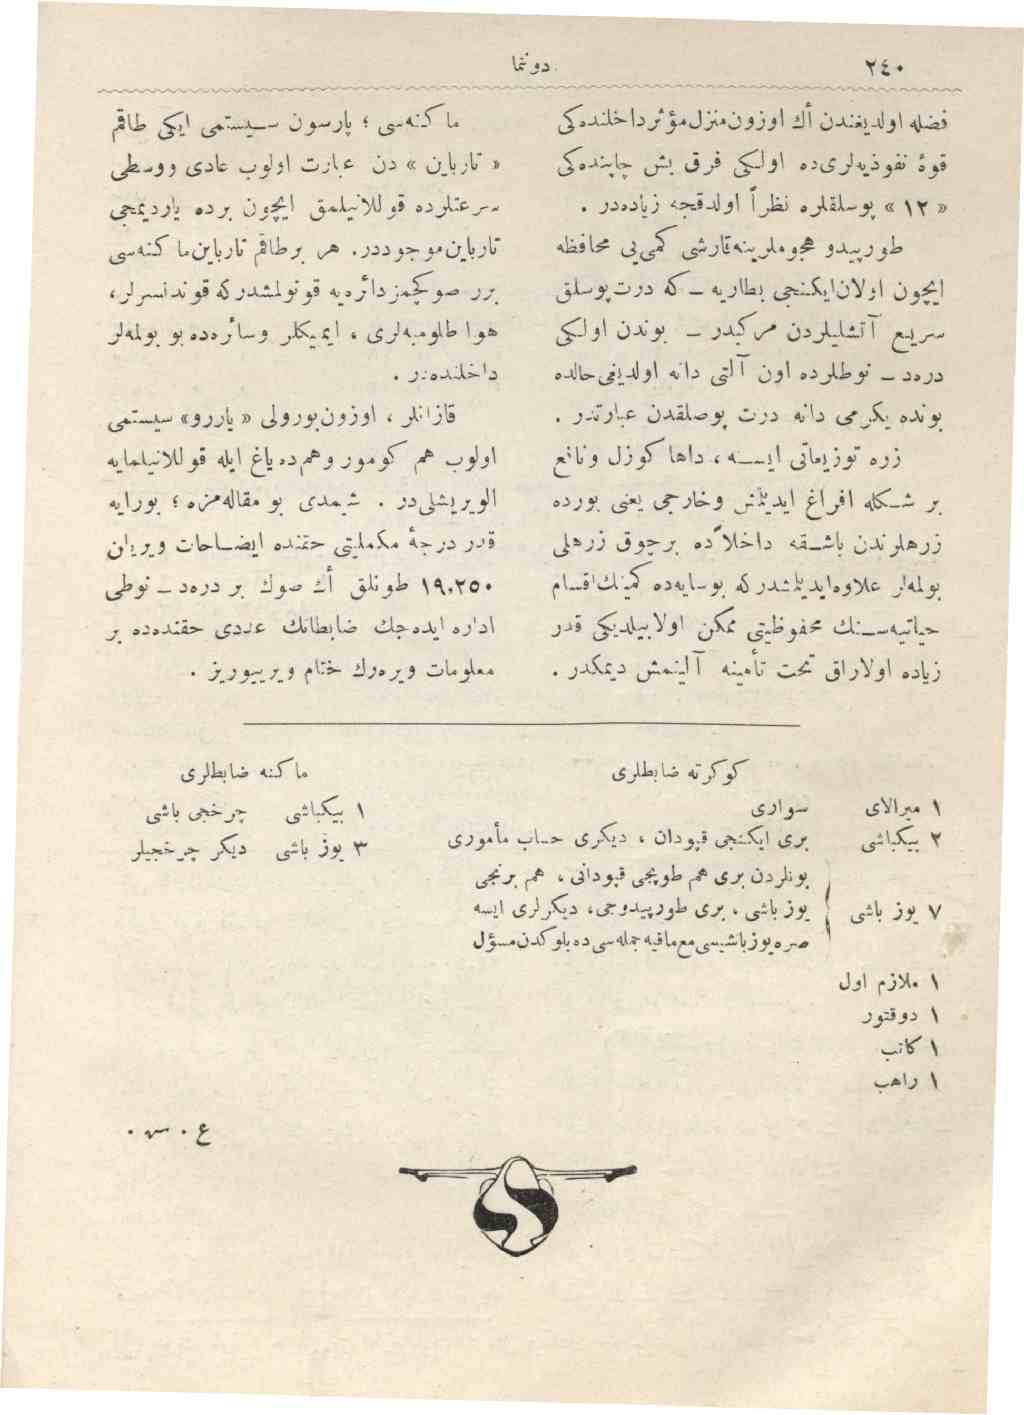 ٢٤٠
دونما
فضله اولدیغندن اڭ اوزون منزل مؤثر داخلنده كی
قوهٔ نفوذیه لری ده اولكی قرق بش چاپنده كی
« ١٢ » پوسلقلره نظراً اولدقجه زیاده در .
طورپیدو هجوملرینه قارشی كمی یی محافظه
ایچون اولان ایكنجی بطاریه ــ كه درت پوسلق
سریع آتشلیلردن مركبدر ــ بوندن اولكی
دره د ــ نوطلرده اون آلتی دانه اولدیغی حالده
بونده یكرمی دانه درت پوصلقدن عبارتدر .
زره توزیعاتی ایسه ، داها كوزل ونافع
بر شكله افراغ ایدیلمش وخارجی یعنی بورده
زرهلرندن باشقه داخلاً ده برچوق زرهلی
بولمه لر علاوه ایدیلمشدر كه بوسایه ده كمینك اقسام
حیاتیه سنك محفوظیتی ممكن اولابیلدیكی قدر
زیاده اولاراق تحت تأمینه آلینمش دیمكدر .
ماكنه سی ؛ پارسون سیستمی ایكی طاقم
« تارباین » دن عبارت اولوب عادی ووسطی
سرعتلرده قوللانیلمق ایچون برده یاردیمجی
تارباین موجوددر. هر برطاقم تارباین ماكنه سی
برر صو كچمز دائره یه قونولمشدر كه قوندانسرلر،
هوا طلومبه لری ، ایمیكلر وسائره ده بو بولمه لر
داخلنده در .
قازانلر ، اوزون بورولی « یاررو » سیستمی
اولوب هم كومور وهم ده یاغ ایله قوللانیلمایه
الویریشلی در . شیمدی بو مقاله مزه ؛ بورایه
قدر درجهٔ مكملیتی حقنده ایضاحات ویریلن
١٩,٢٥٠ طونلق اڭ صوك بر دره د ــ نوطی
اداره ایده جك ضابطانك عددی حقنده ده بر
معلومات ویره رك ختام ویرییوریز .
كوكرته ضابطلری
١ میرالای سواری
٢ بیكباشی بری ایكنجی قپودان ، دیكری حساب مأموری
٧ یوز باشی
بونلردن بری هم طوپجی قپودانی ، هم برنجی
یوز باشی ، بری طورپیدوجی، دیكرلری ایسه
صره یوزباشیسی مع مافیه جمله سی ده بلوكدن مسؤل
١ ملازم اول
١ دوقتور
١ كاتب
١ راهب
ماكنه ضابطلری
١ بیكباشی چرخجی باشی
٣ یوز باشی دیكر چرخجیلر
ع . س .